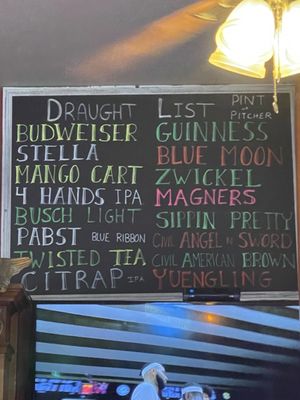 DRAUGHT LIST PINT or PITCHER
BUDWEISER
STELLA
MANGO CART
4 HANDS IPA
BUSCH LIGHT
PABST BLUE RIBBON
TWISTED TEA
CITRAP IPA
GUINNESS
BLUE MOON
ZWICKEL
MAGNERS
SIPPIN PRETTY
CIVIL ANGEL N SWORD
CIVIL AMERICAN BROWN
YUENGLING